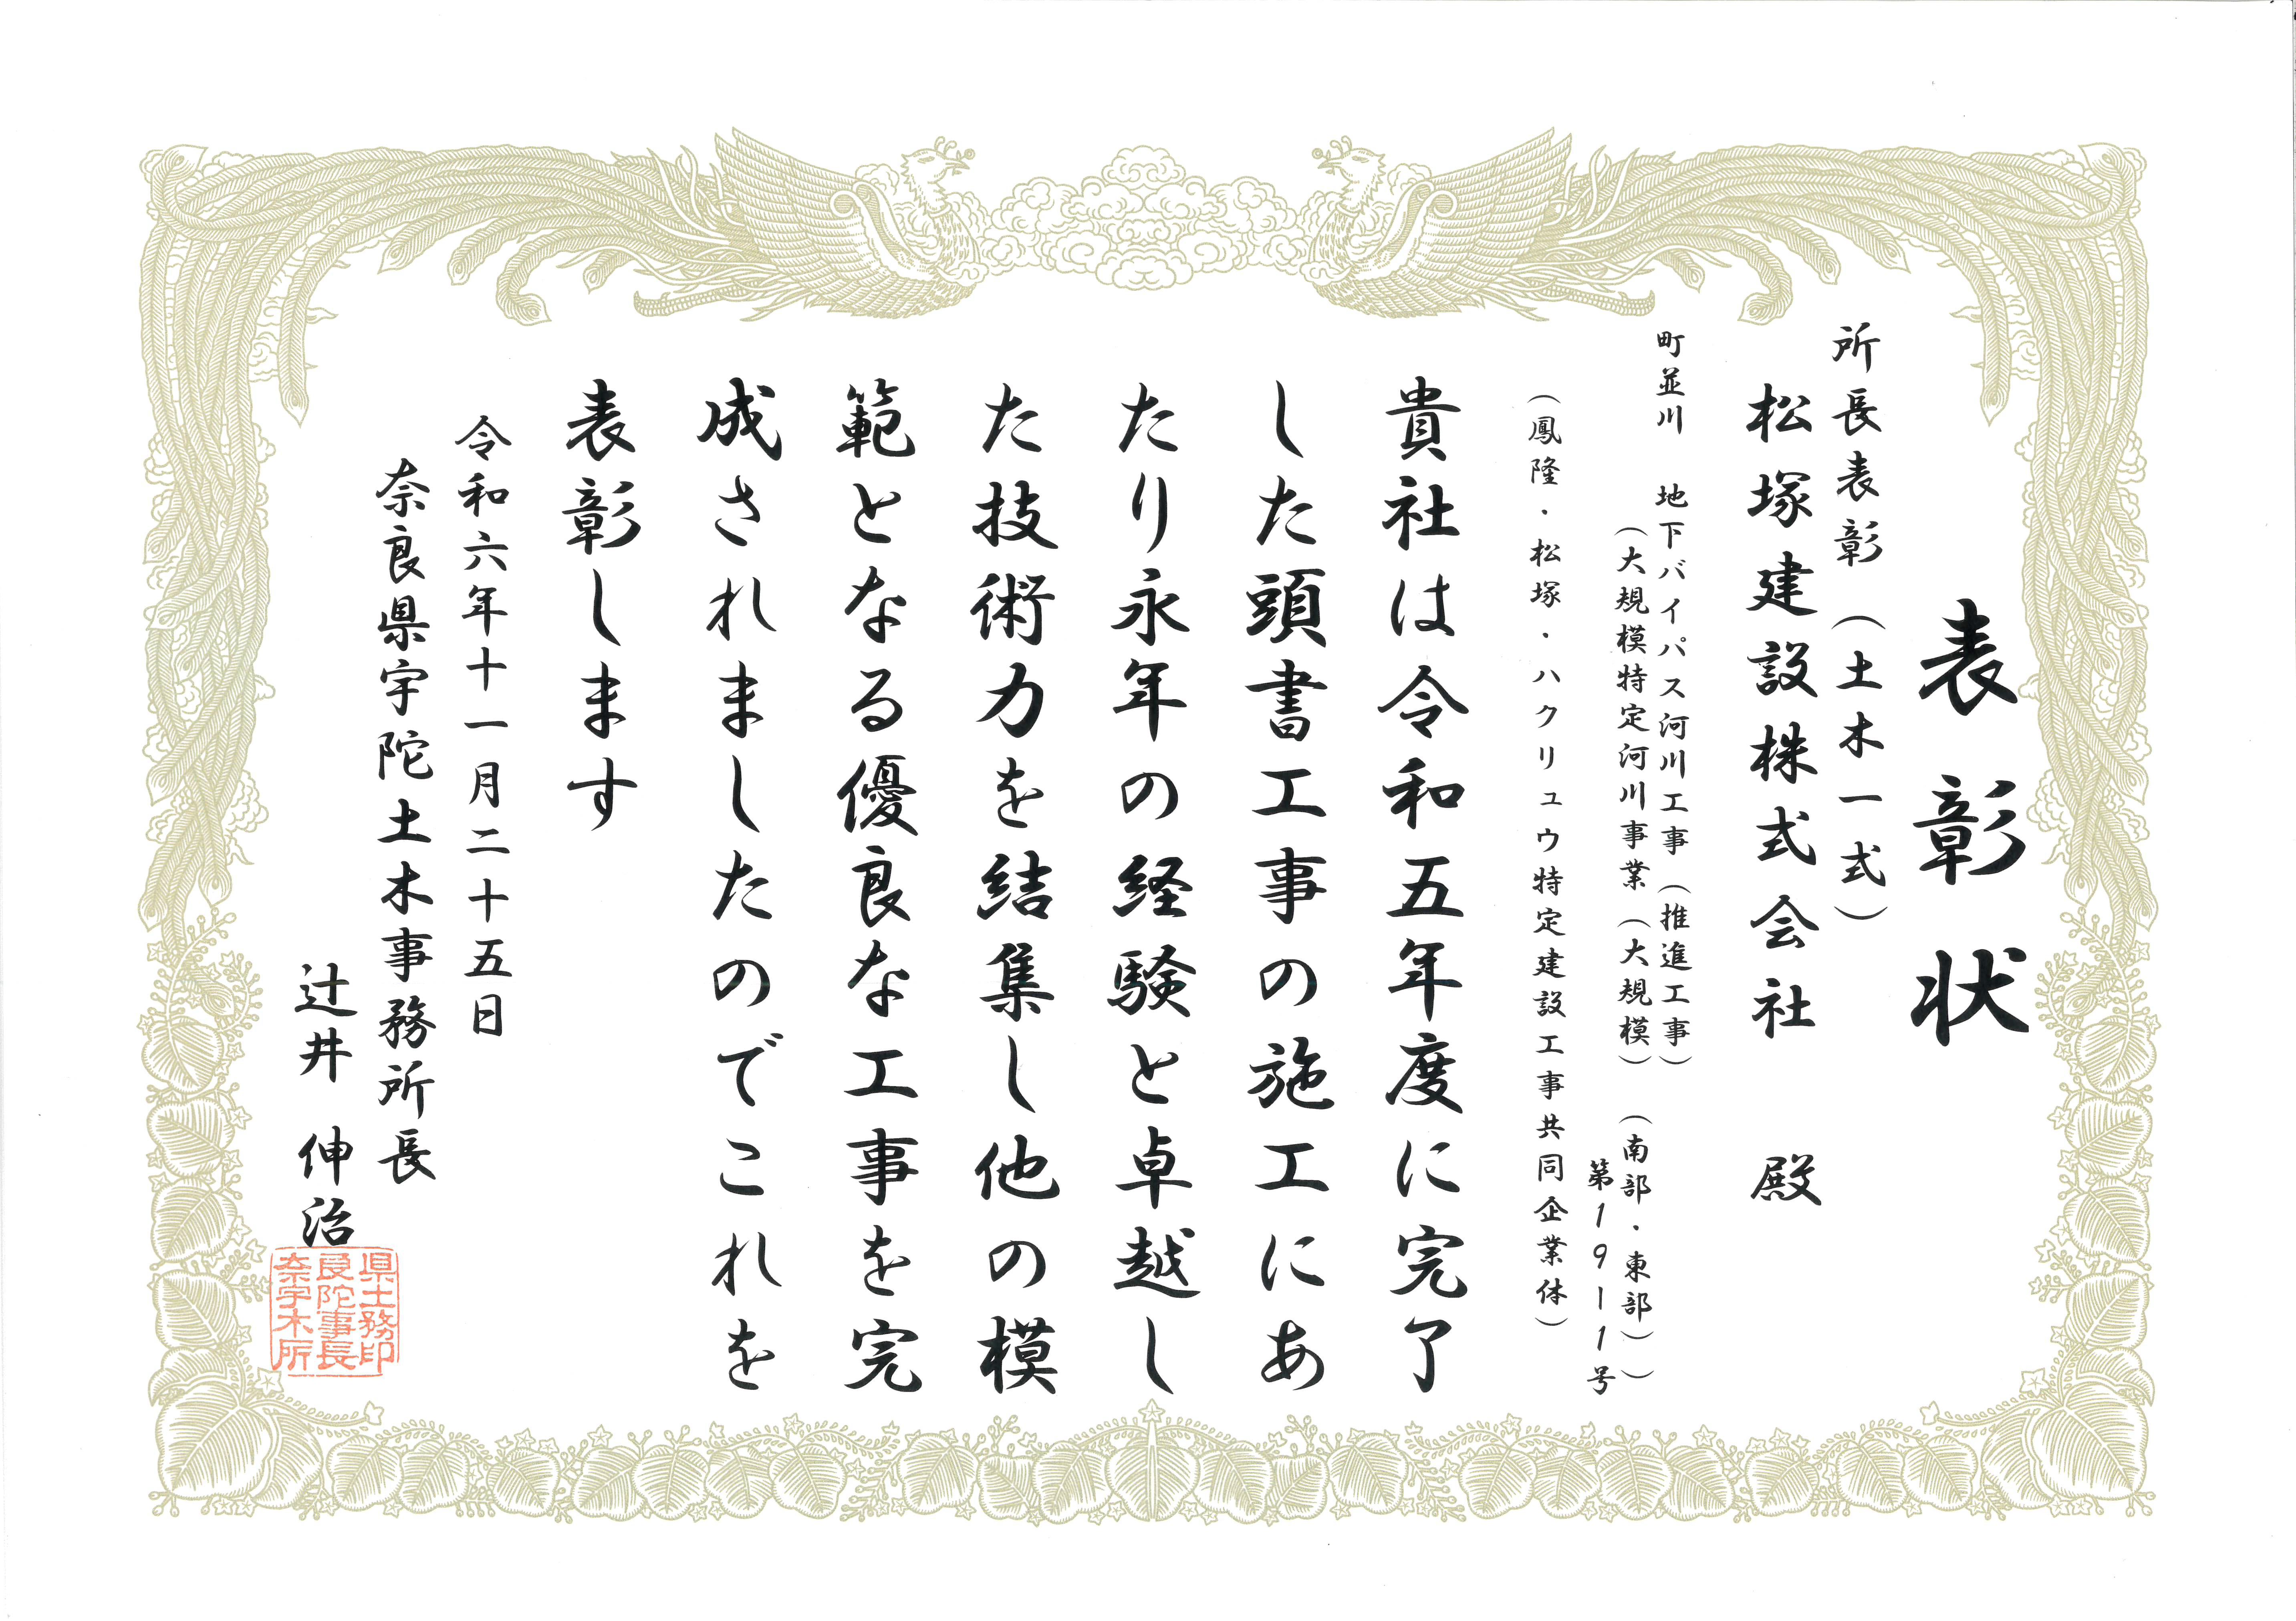 表彰状
所長表彰（土木一式）
松塚建設株式会社　殿
町並川　地下バイパス河川工事（推進工事）
（大規模特定河川事業（大規模）　（南部・東部））
第191-1号
（鳳隆・松塚・ハクリュウ特定建設工事共同企業体）
貴社は令和五年度に完了
した頭書工事の施工にあ
たり永年の経験と卓越し
た技術力を結集し他の模
範となる優良な工事を完
成されましたのでこれを
表彰します
令和六年十一月二十五日
奈良県宇陀土木事務所長
辻井　伸治
県土務印
良陀事長
奈宇木所